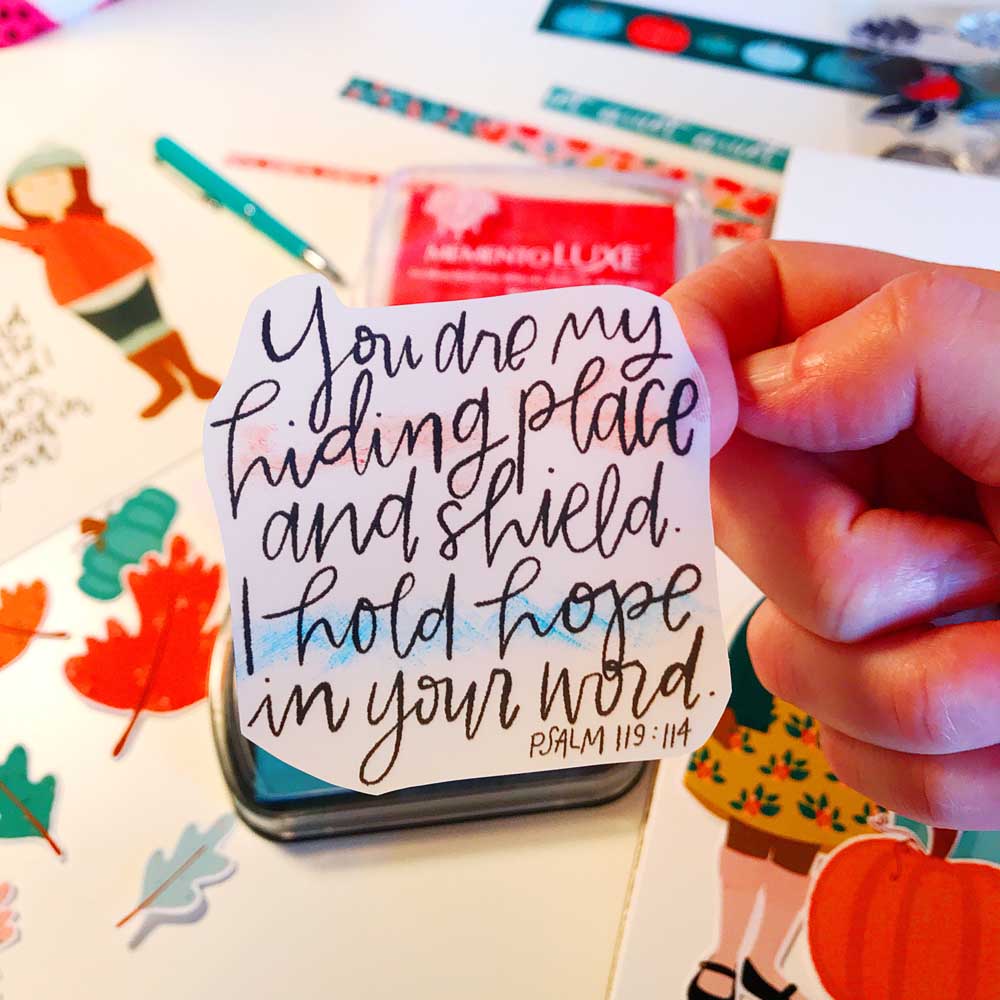 MEMENTO LUXE
You are my
hiding place
and shield.
I hold hope
in your word.
PSALM 119:114